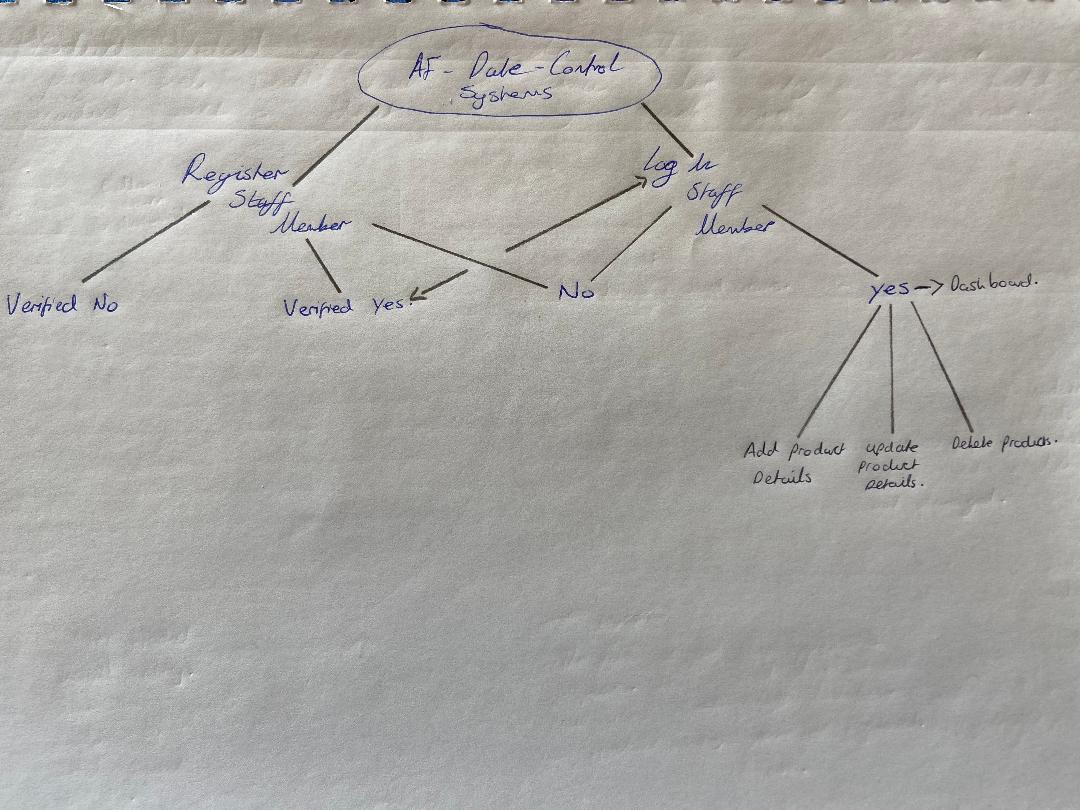 AF - Date - Control
Systems
Register
Staff
Member
Log In
Staff
Member
Verified No
Verified Yes.
No
yes -> Dashboard.
Add product
Details
update
product
Details.
Delete products.